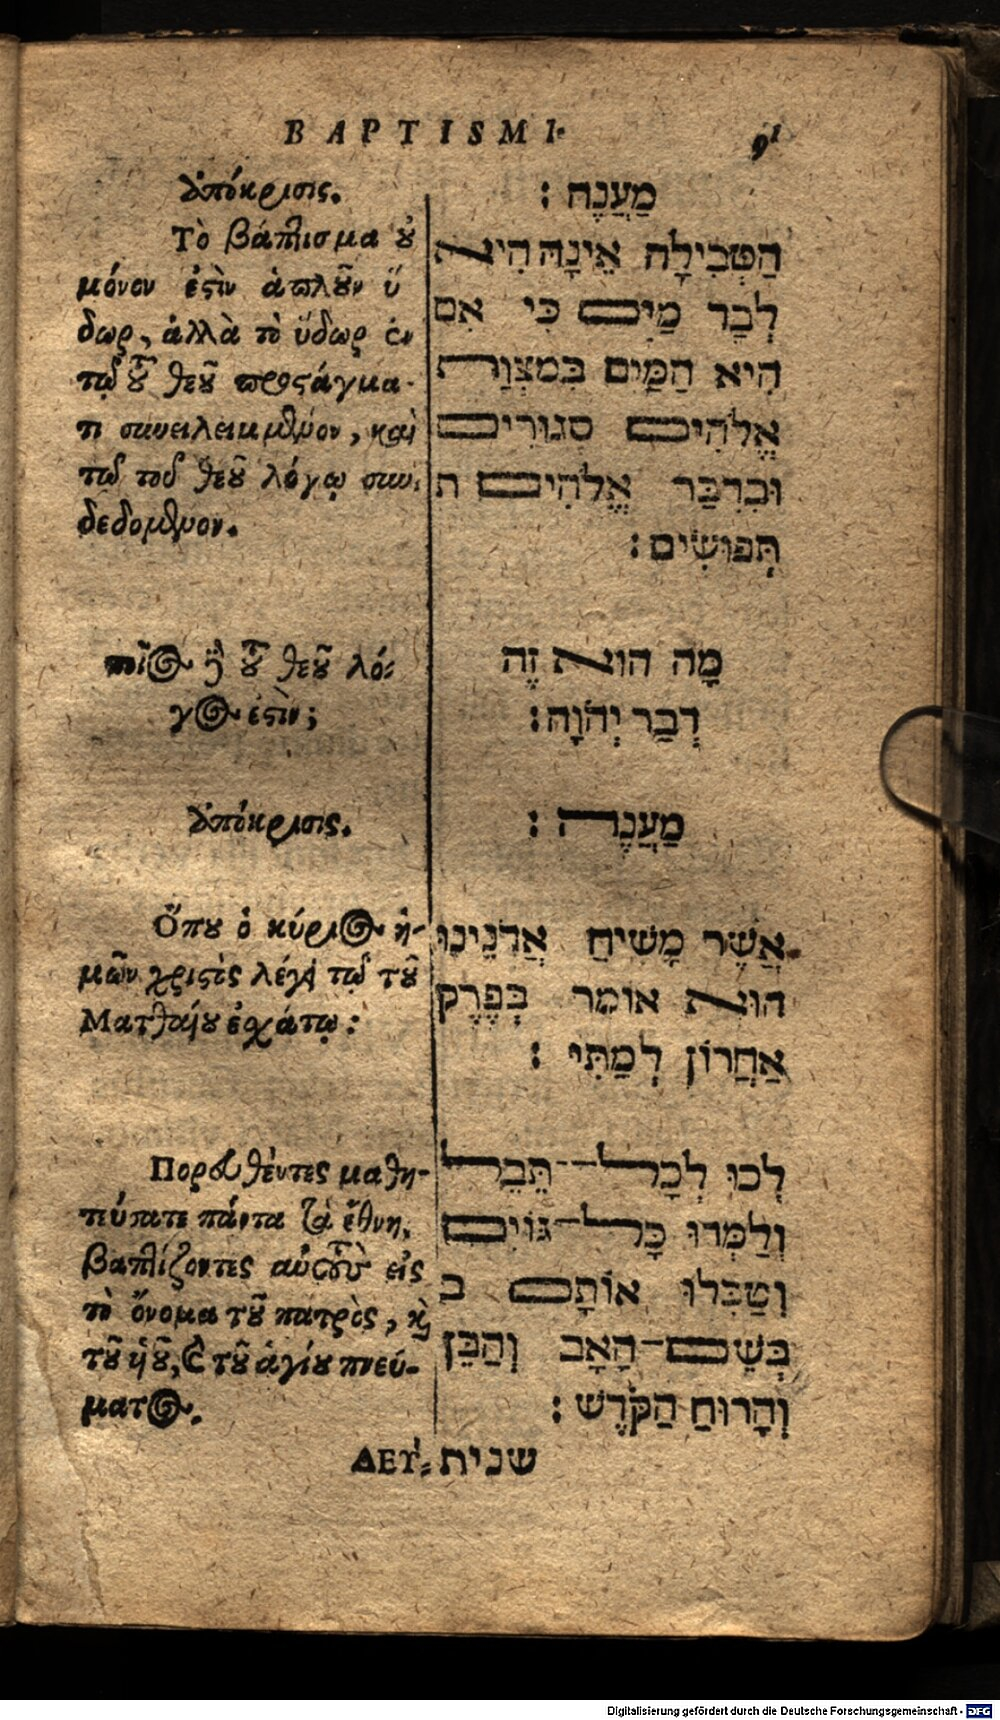 BAPTISMI.
91
ἀπόκρισις.
Τὸ βάπτισμα οὐ
μόνον ἐστὶν ἁπλοῦν ὕ
δωρ, ἀλλὰ τὸ ὕδωρ ἐν
τῷ τοῦ θεοῦ προστάγμα-
τι συνειλειμμένον, καὶ
τῷ τοῦ θεοῦ λόγῳ συν-
δεδομένον.
τίς ὁ τοῦ θεοῦ λό-
γος ἐστίν;
ἀπόκρισις.
Ὅπου ὁ κύριος ἡ-
μῶν χριστὸς λέγει τῷ τοῦ
Ματθαίου ἐχάτῳ:
Πορευθέντες μαθη-
τεύσατε πάντα τὰ ἔθνη,
βαπτίζοντες αὐτοὺς εἰς
τὸ ὄνομα τοῦ πατρὸς, καὶ
τοῦ υἱοῦ, καὶ τοῦ ἁγίου πνεύ-
ματος.
מַעֲנֶה :
הַטְּבִילָה אֵינָהּ הִיא
לְבַד מַיִם כִּי אִם
הִיא הַמַּיִם בְּמִצְוַת
אֱלֹהִים סְגוּרִים
וּבִדְבַר אֱלֹהִים ת
תְּפוּשִׂים :
מָה הוּא זֶה
דְבַר יְהֹוָה:
מַעֲנֶה :
אֲשֶׁר מָשִׁיחַ אֲדֹנֵינוּ
הוּא אוֹמר בְּפֶרֶק
אַחֲרוֹן לְמַתִּי :
לְכוּ לְכָל־תֵּבֵל
וְלַמְּדוּ כָּל־גּוֹיִם
וְטַבִּלוּ אוֹתָם ב
בְּשֵׁם־הָאָב וְהַבֵּן
וְהָרוּחַ הַקֹּדֶשׁ :
ΔΕΥ-
שנית